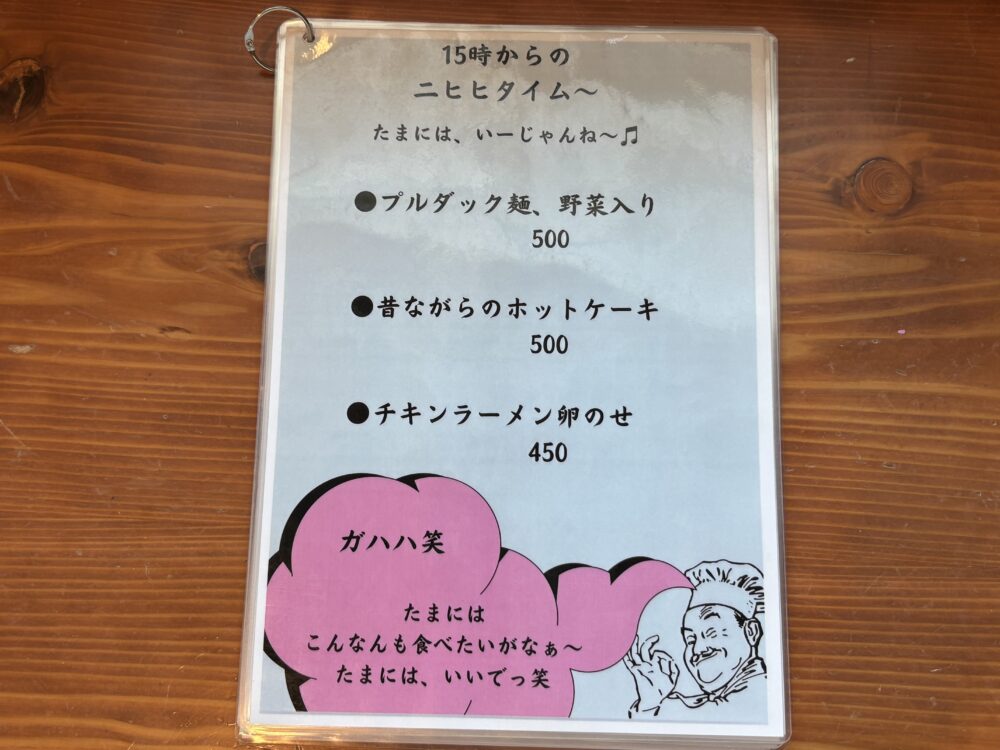 15時からの
ニヒヒタイム～
たまには、いーじゃんね～♬
●プルダック麺、野菜入り
500
●昔ながらのホットケーキ
500
●チキンラーメン卵のせ
450
ガハハ笑
たまには
こんなんも食べたいがなぁ～
たまには、いいでっ笑